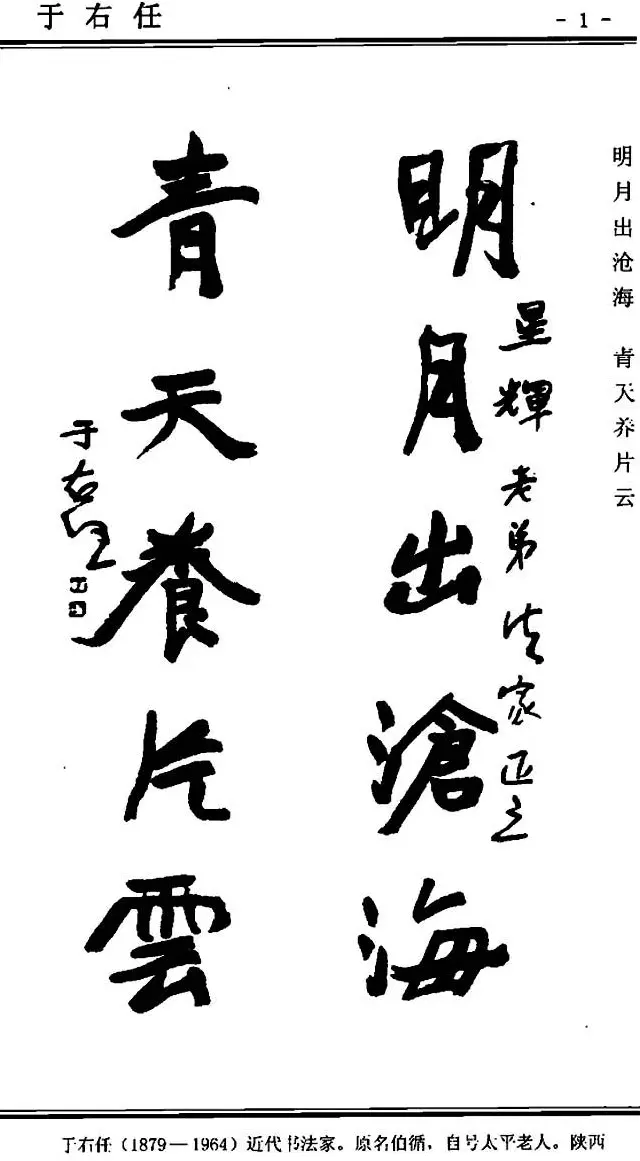 于右任
- 1 -
明月出沧海 青天养片云
明月出滄海
星輝老弟法家正之
青天養片雲
于右任
于右任（1879—1964）近代书法家。原名伯循，自号太平老人。陕西